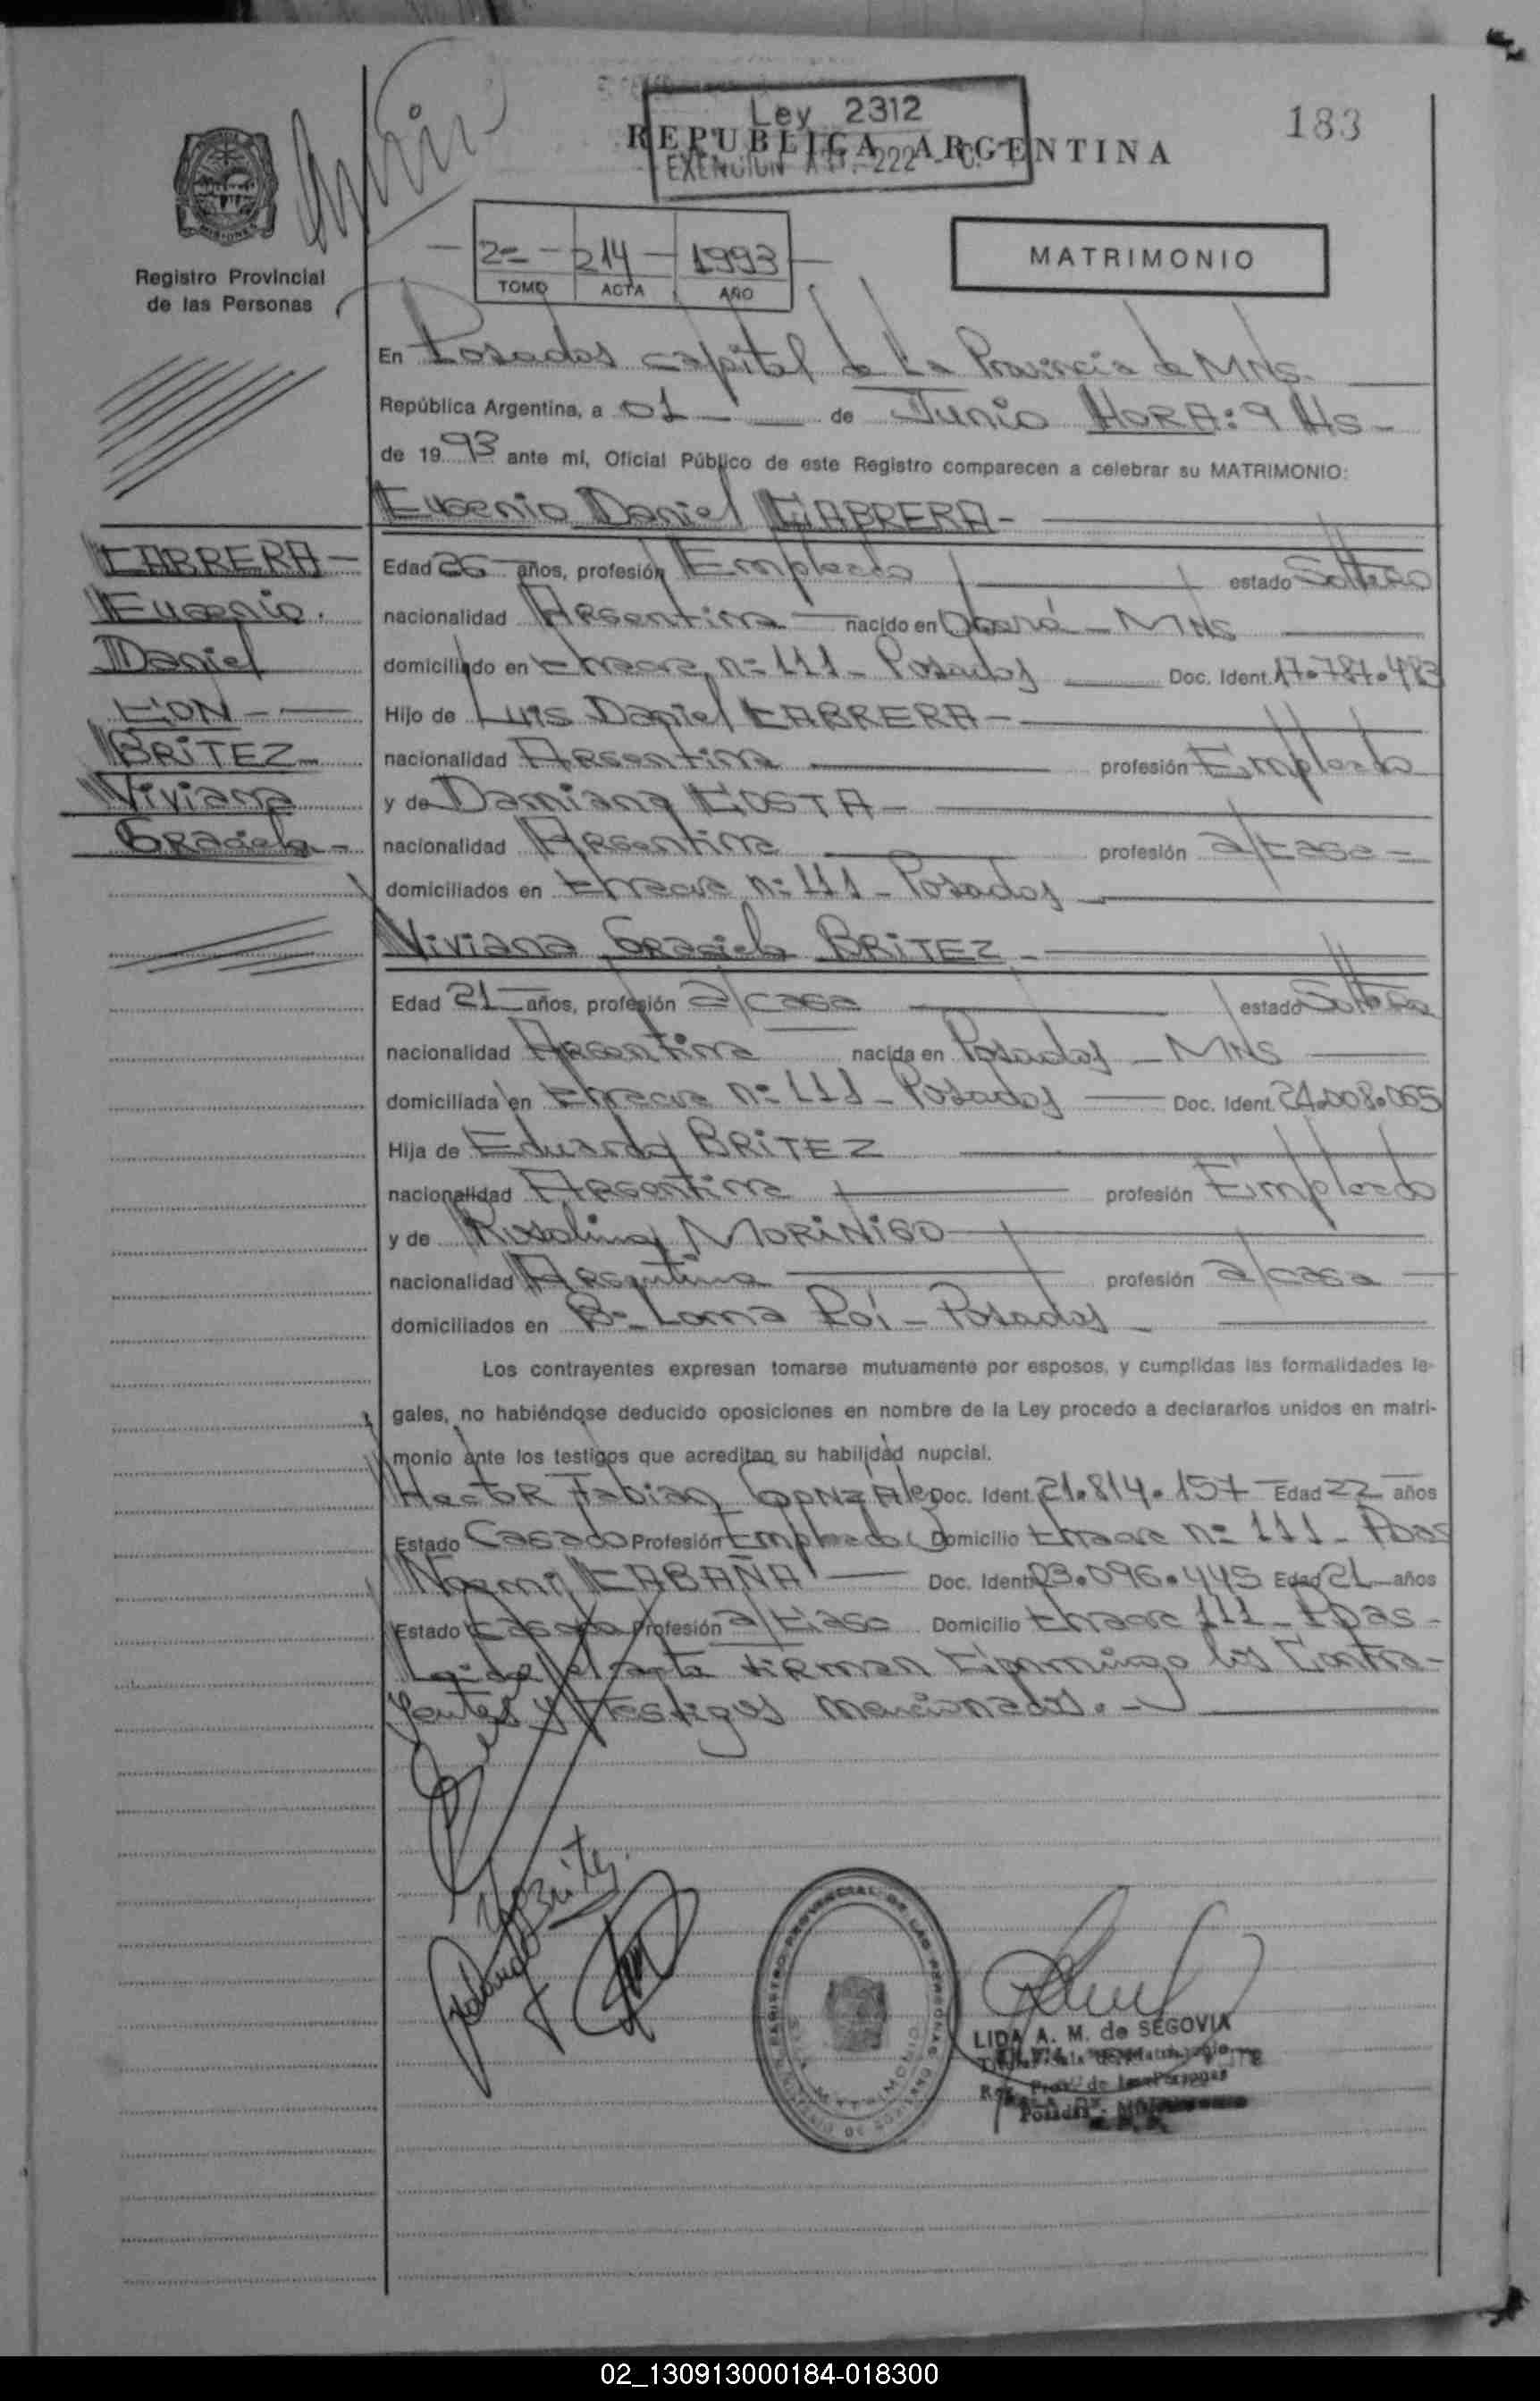 183
Ley 2312
REPUBLICA ARGENTINA
EXENCION ART. 222
Registro Provincial
de las Personas
2º - 214 - 1993
TOMO ACTA AÑO
MATRIMONIO
En Posadas capital de la Provincia de MNS.
República Argentina, a 01 de Junio HORA: 9 Hs -
de 1993 ante mí, Oficial Público de este Registro comparecen a celebrar su MATRIMONIO:
Eugenio Daniel CABRERA -
CABRERA -
Eugenio
Daniel
CON -
BRITEZ
Viviana
Graciela -
Edad 26 años, profesión Empleado estado Soltero
nacionalidad Argentina nacido en Oberá - MNS
domiciliado en nº 111 - Posadas Doc. Ident. 17.787.483
Hijo de Luis Daniel CABRERA -
nacionalidad Argentina profesión Empleado
y de Damiana COSTA -
nacionalidad Argentina profesión a/casa -
domiciliados en nº 111 - Posadas
Viviana Graciela BRITEZ -
Edad 21 años, profesión a/casa estado Soltera
nacionalidad Argentina nacida en Posadas - MNS
domiciliada en nº 111 - Posadas Doc. Ident. 24.008.065
Hija de Eduardo BRITEZ
nacionalidad Argentina profesión Empleado
y de Rosalina MORINIGO
nacionalidad Argentina profesión a/casa
domiciliados en Bº Loma Poi - Posadas -
Los contrayentes expresan tomarse mutuamente por esposos, y cumplidas las formalidades le-
gales, no habiéndose deducido oposiciones en nombre de la Ley procedo a declararlos unidos en matri-
monio ante los testigos que acreditan su habilidad nupcial.
Hector Fabian GONZALez Doc. Ident. 21.814.157 Edad 22 años
Estado Casado Profesión Empleado Domicilio nº 111 - Pdas
Noemi CABAÑA Doc. Ident. 23.096.445 Edad 21 años
Estado Casada Profesión a/casa Domicilio 111 - Pdas -
Leida el acta firman conmigo los Contra-
yentes y testigos mencionados. -
LIDA A. M. de SEGOVIA
Reg. Prov. de las Personas
Posadas -
02_130913000184-018300